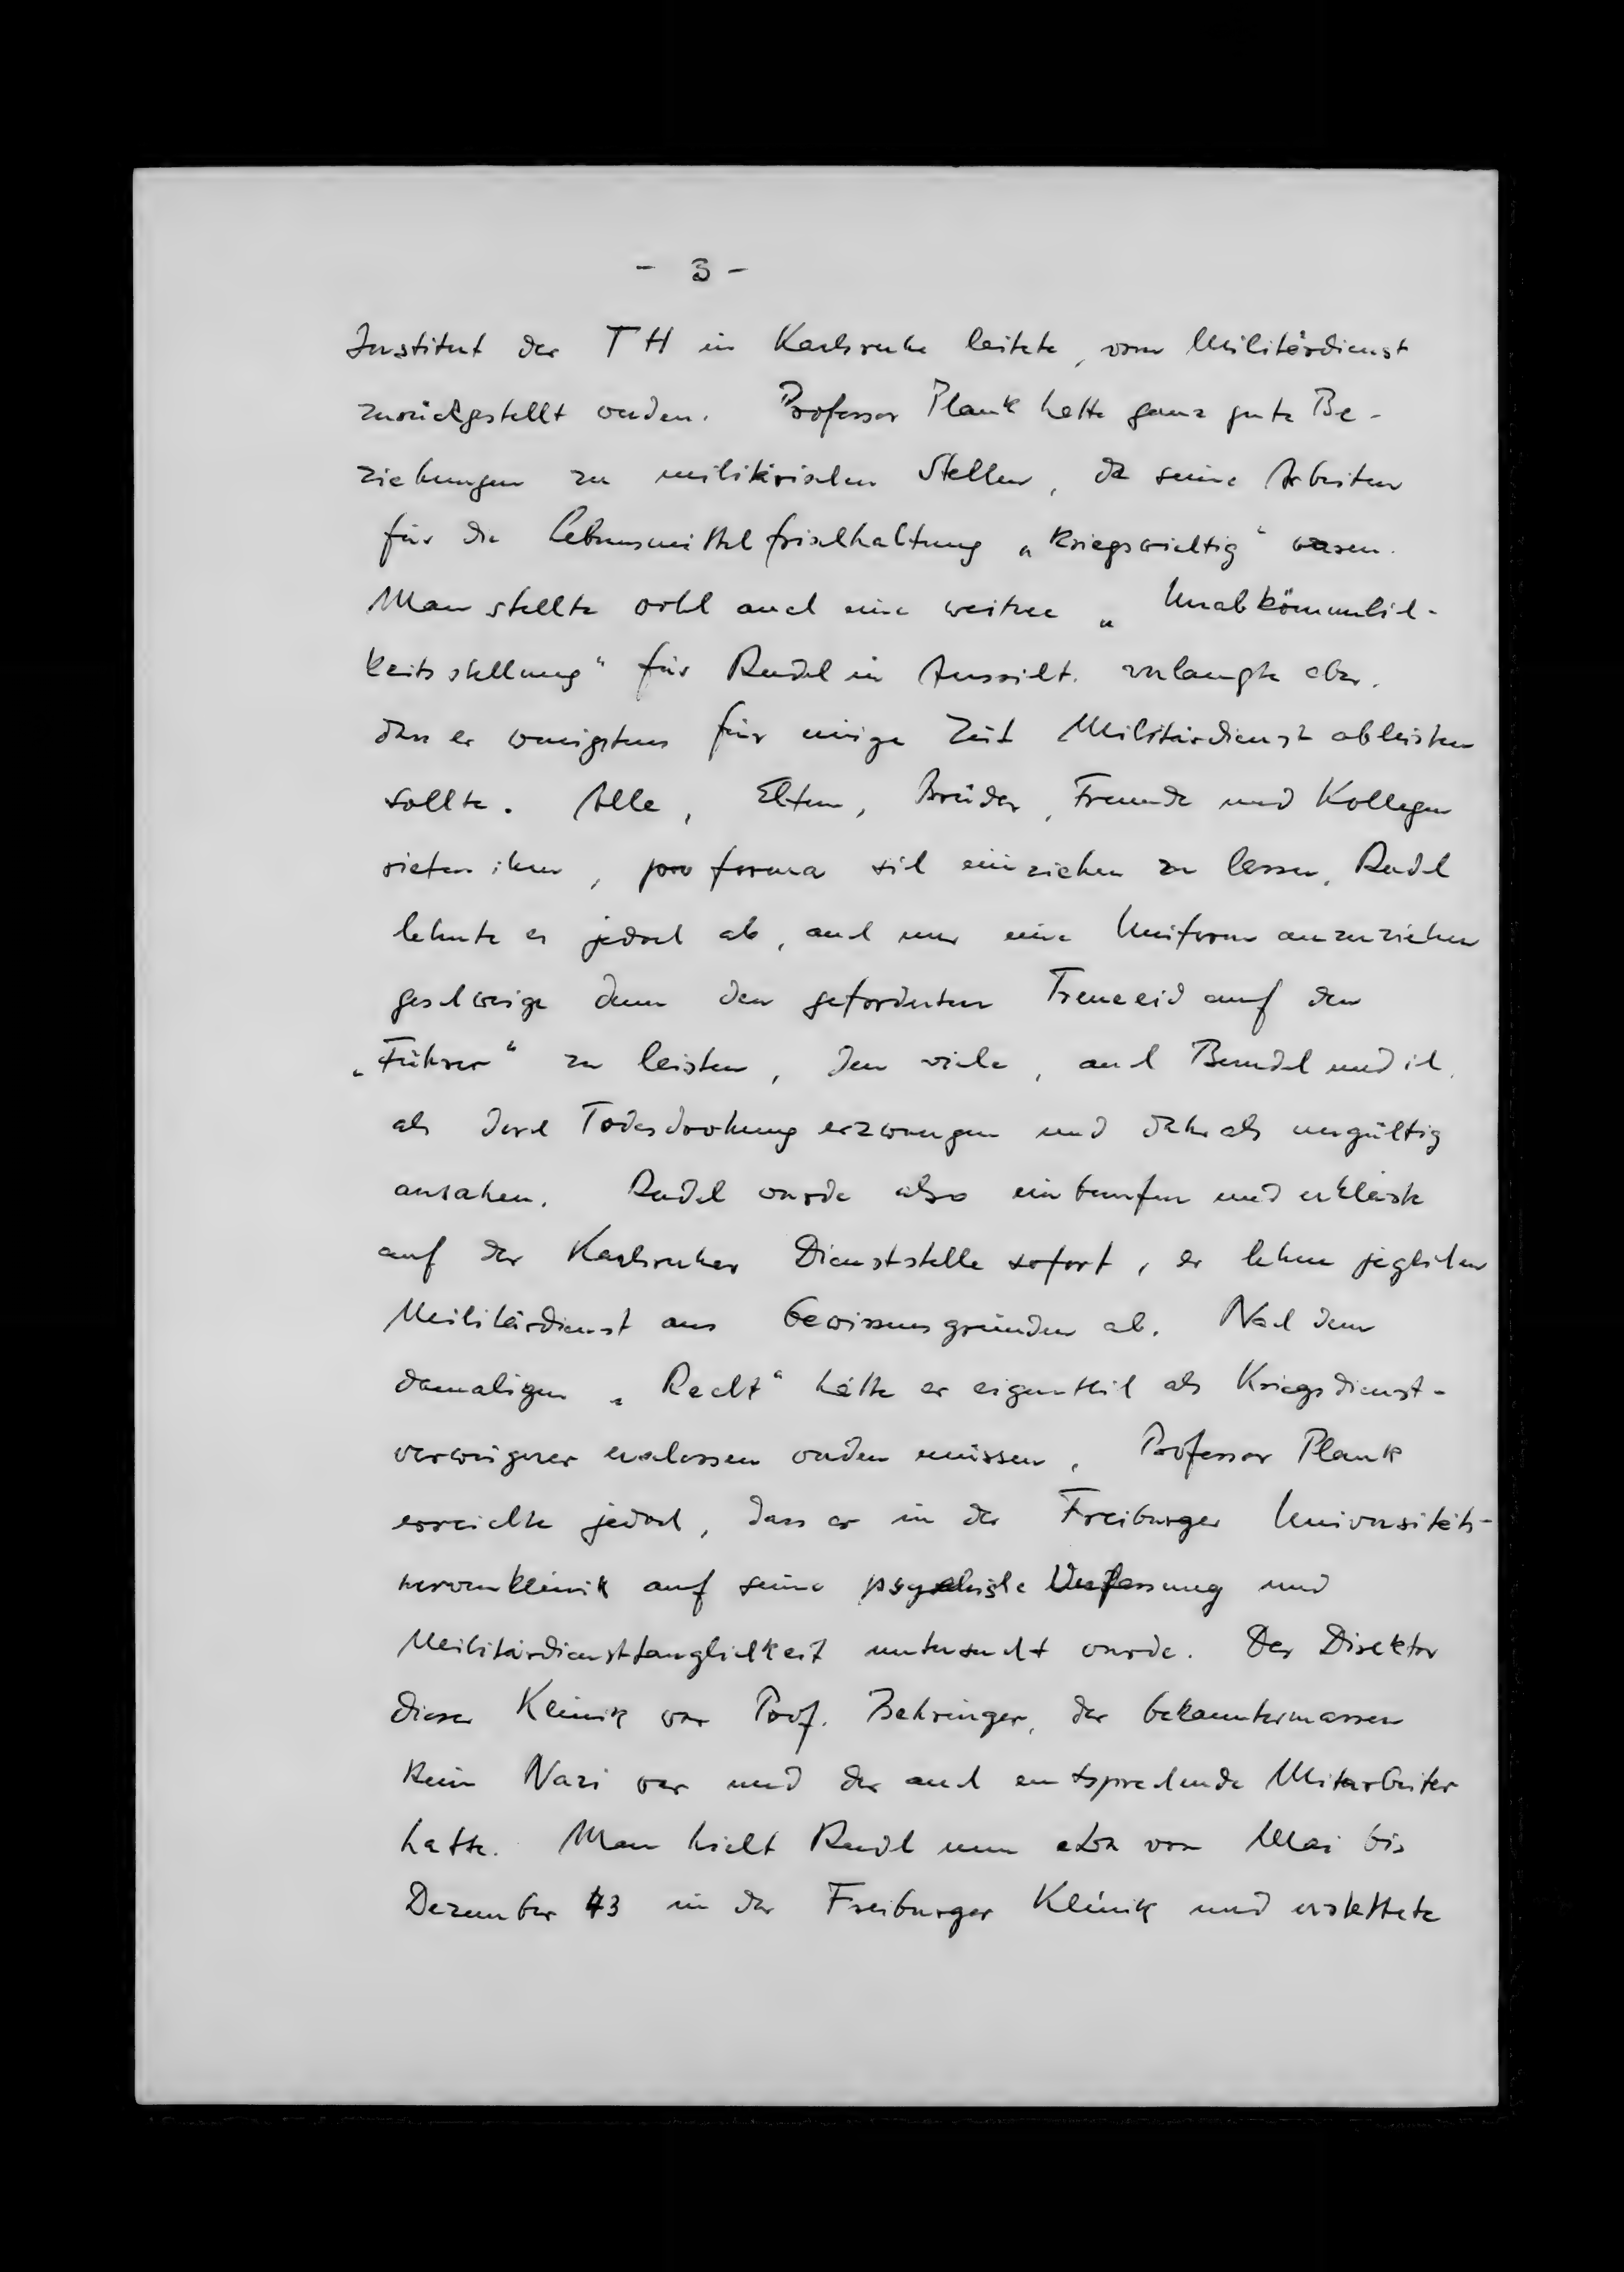 - 3 -
Institut der TH in Karlsruhe leitete, vom Militärdienst
zurückgestellt werden. Professor Plank hatte ganz gute Be-
ziehungen zu militärischen Stellen, da seine Arbeiten
für die Lebensmittelfrischhaltung „kriegswichtig“ waren.
Man stellte wohl auch eine weitere „Unabkömmlich-
keitsstellung“ für Reudel in Aussicht. verlangte aber,
dass er wenigstens für einige Zeit Militärdienst ableisten
sollte. Alle, Eltern, Brüder, Freunde und Kollegen
rieten ihm, pro forma sich einziehen zu lassen, Reudel
lehnte es jedoch ab, auch nur eine Uniform anzuziehen
geschweige denn den geforderten Treueeid auf den
„Führer“ zu leisten, den viele, auch Berndel und ich,
als durch Todesdrohung erzwungen und daher als ungültig
ansahen. Reudel wurde also einberufen und erklärte
auf der Karlsruher Dienststelle sofort, er lehne jeglichen
Militärdienst aus Gewissensgründen ab. Nach dem
damaligen „Recht“ hätte er eigentlich als Kriegsdienst-
verweigerer erschossen werden müssen, Professor Plank
erreichte jedoch, dass er in der Freiburger Universitäts-
nervenklinik auf seine psychische Verfassung und
Militärdiensttauglichkeit untersucht wurde. Der Direktor
dieser Klinik war Prof. Behringer, der bekanntermassen
kein Nazi war und der auch entsprechende Mitarbeiter
hatte. Man hielt Reudel nun etwa von Mai bis
Dezember 43 in der Freiburger Klinik und erstattete